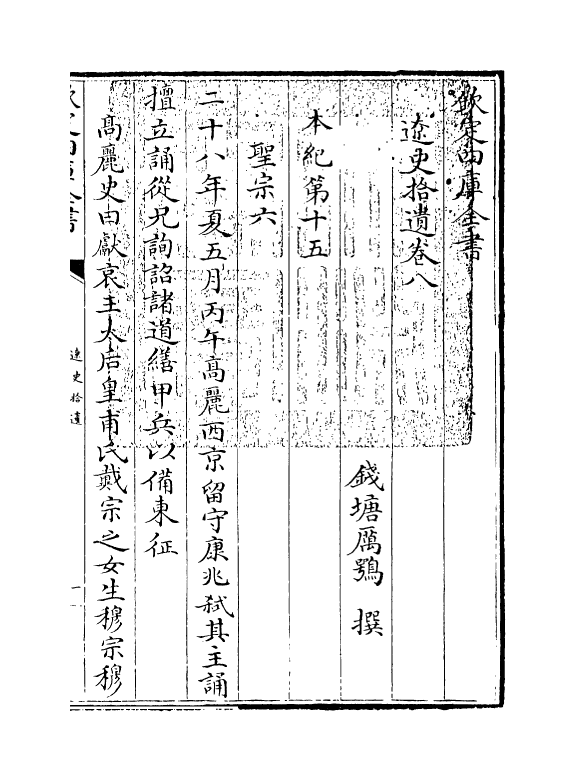 欽定四庫全書
遼史拾遺卷八
錢塘厲鶚 撰
本紀第十五
聖宗六
二十八年夏五月丙午高麗西京留守康兆弑其主誦
擅立誦從兄詢詔諸道繕甲兵以備東征
高麗史曰獻哀王太后皇甫氏戴宗之女生穆宗穆
欽定四庫全書
遼史拾遺
一